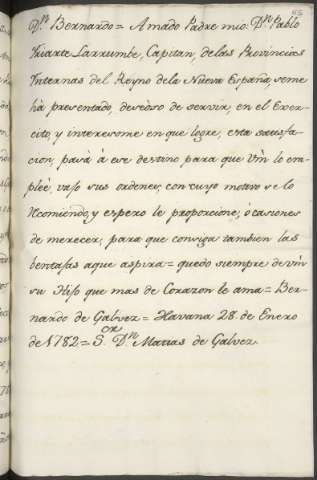 Dn. Bernardo = Amado Padre mio: Dn. Pablo
Yriarte Larrumbe, Capitan, delas Provincias
Ynternas del Reyno dela Nueva España, seme
hà presentado, deseoso de servir, en el Exer-
cito, y interesome en que logre, esta satisfa-
cion, pasa à ese destino para que Vm lo em-
plèe, vajo sus ordenes, con cuyo motivo se lo
Recomiendo, y espero le proporcione, ócasiones
de merecer, para que consiga tambien las
bentajas aque aspira = quedo siempre de Vm
su Hijo que mas de Corazon le ama = Ber-
nardo de Galvez = Havana 28 de Enero
de 1782 = Sor. Dn. Matias de Galvez